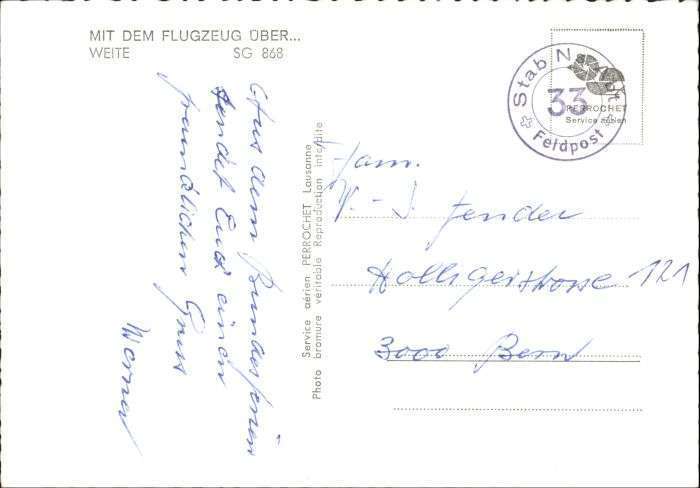 MIT DEM FLUGZEUG ÜBER...
WEITE SG 868
Aus dem Bundesferien
sendet Euch einen
freundlichen Gruss
Werner
Service aérien PERROCHET Lausanne
Photo bromure véritable Reproduction interdite
Stab N
33
Feldpost
PERROCHET
Service aérien
Fam.
Fender
121
3000 Bern